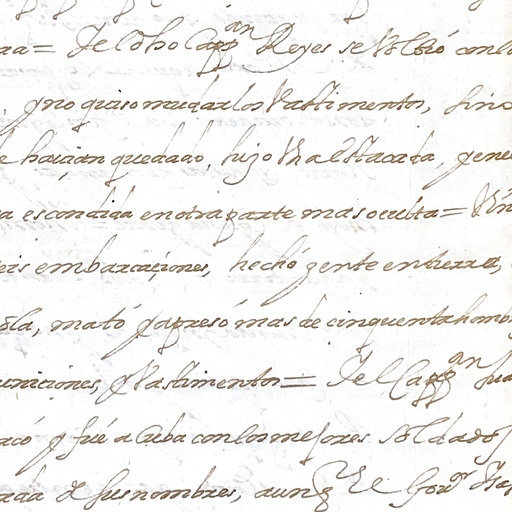 = Y el dho Capp.an Reyes se volbió con
y no quiso mudar los Vastimentos, sino
haician quedado, hizo Vna Estacada, y
escondida en otra parte mas oculta =
embarcaciones, hechó gente en tierra,
mató y apresó mas de cinquenta homb
municiones, y Vastimentos = Y el Capp.an
y fué a Cuba con los mejores soldados
de sus nombres, aunq